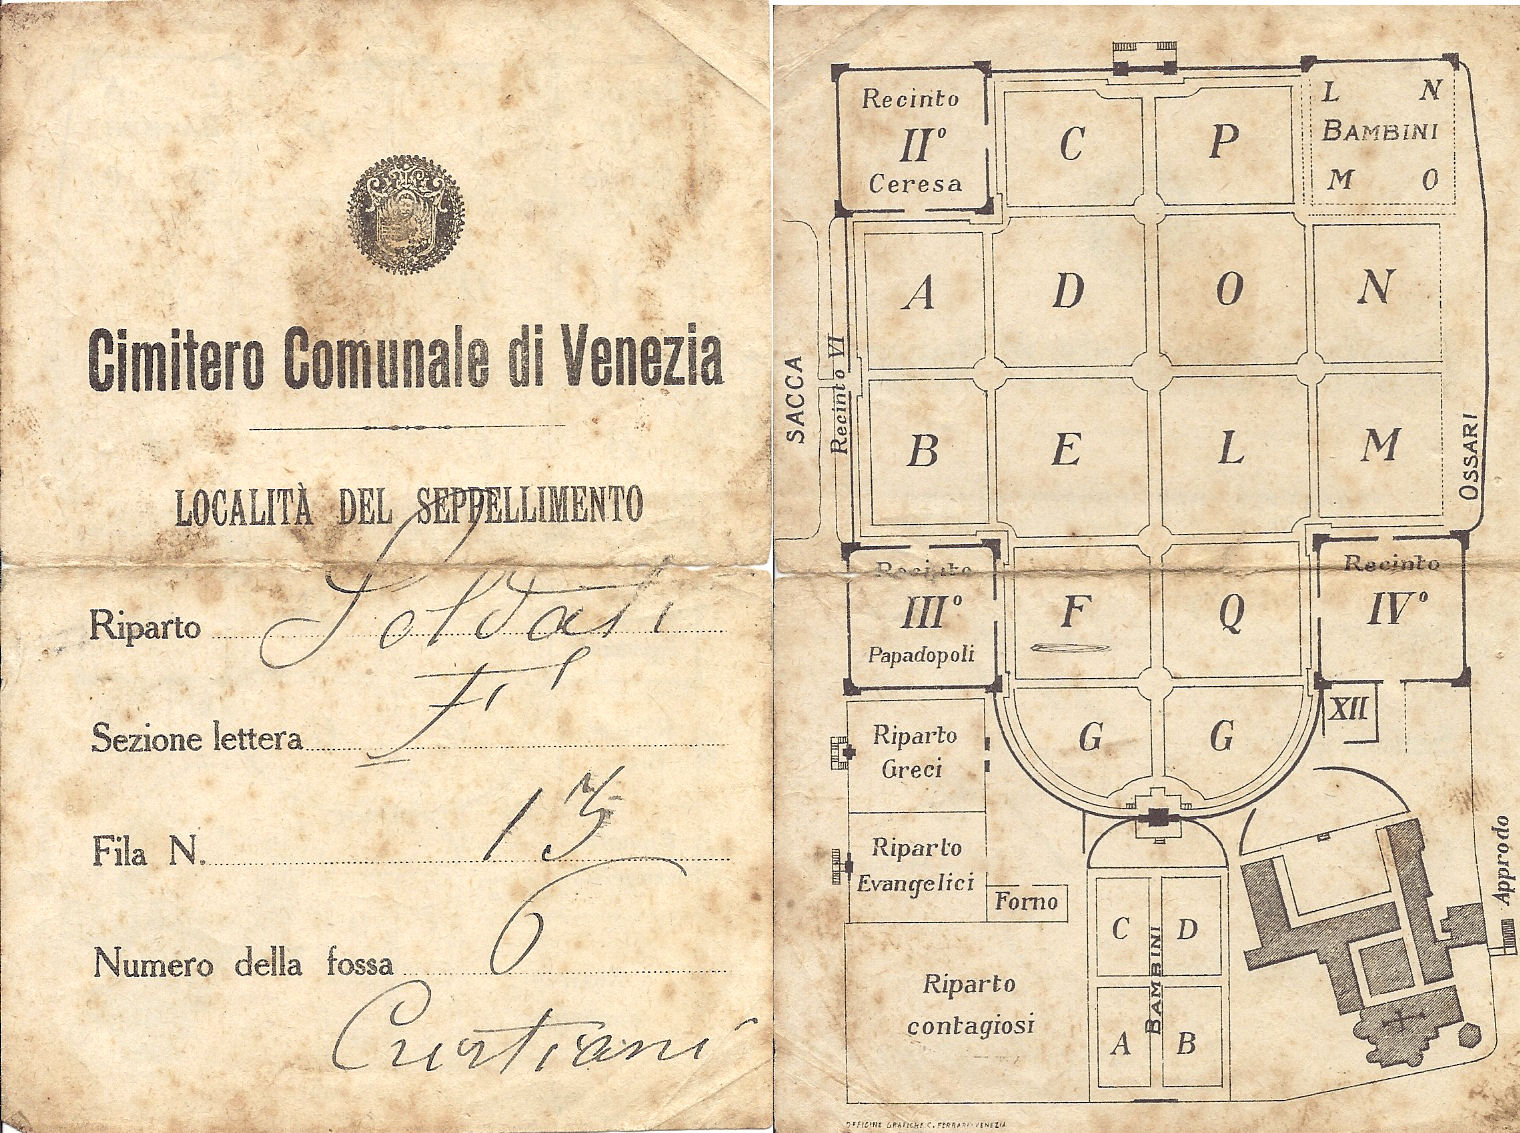 Cimitero Comunale di Venezia
LOCALITÀ DEL SEPPELLIMENTO
Riparto Soldati
Sezione lettera F
Fila N. 13
Numero della fossa 6
Cristiani
Recinto
IIº
Ceresa
C
P
L N
BAMBINI
M O
A
D
O
N
SACCA
Recinto VI
B
E
L
M
OSSARI
Recinto
IIIº
Papadopoli
F
Q
Recinto
IVº
XII
G
G
Riparto
Greci
Riparto
Evangelici
Forno
Approdo
C
D
BAMBINI
A
B
Riparto
contagiosi
OFFICINE GRAFICHE C. FERRARI-VENEZIA